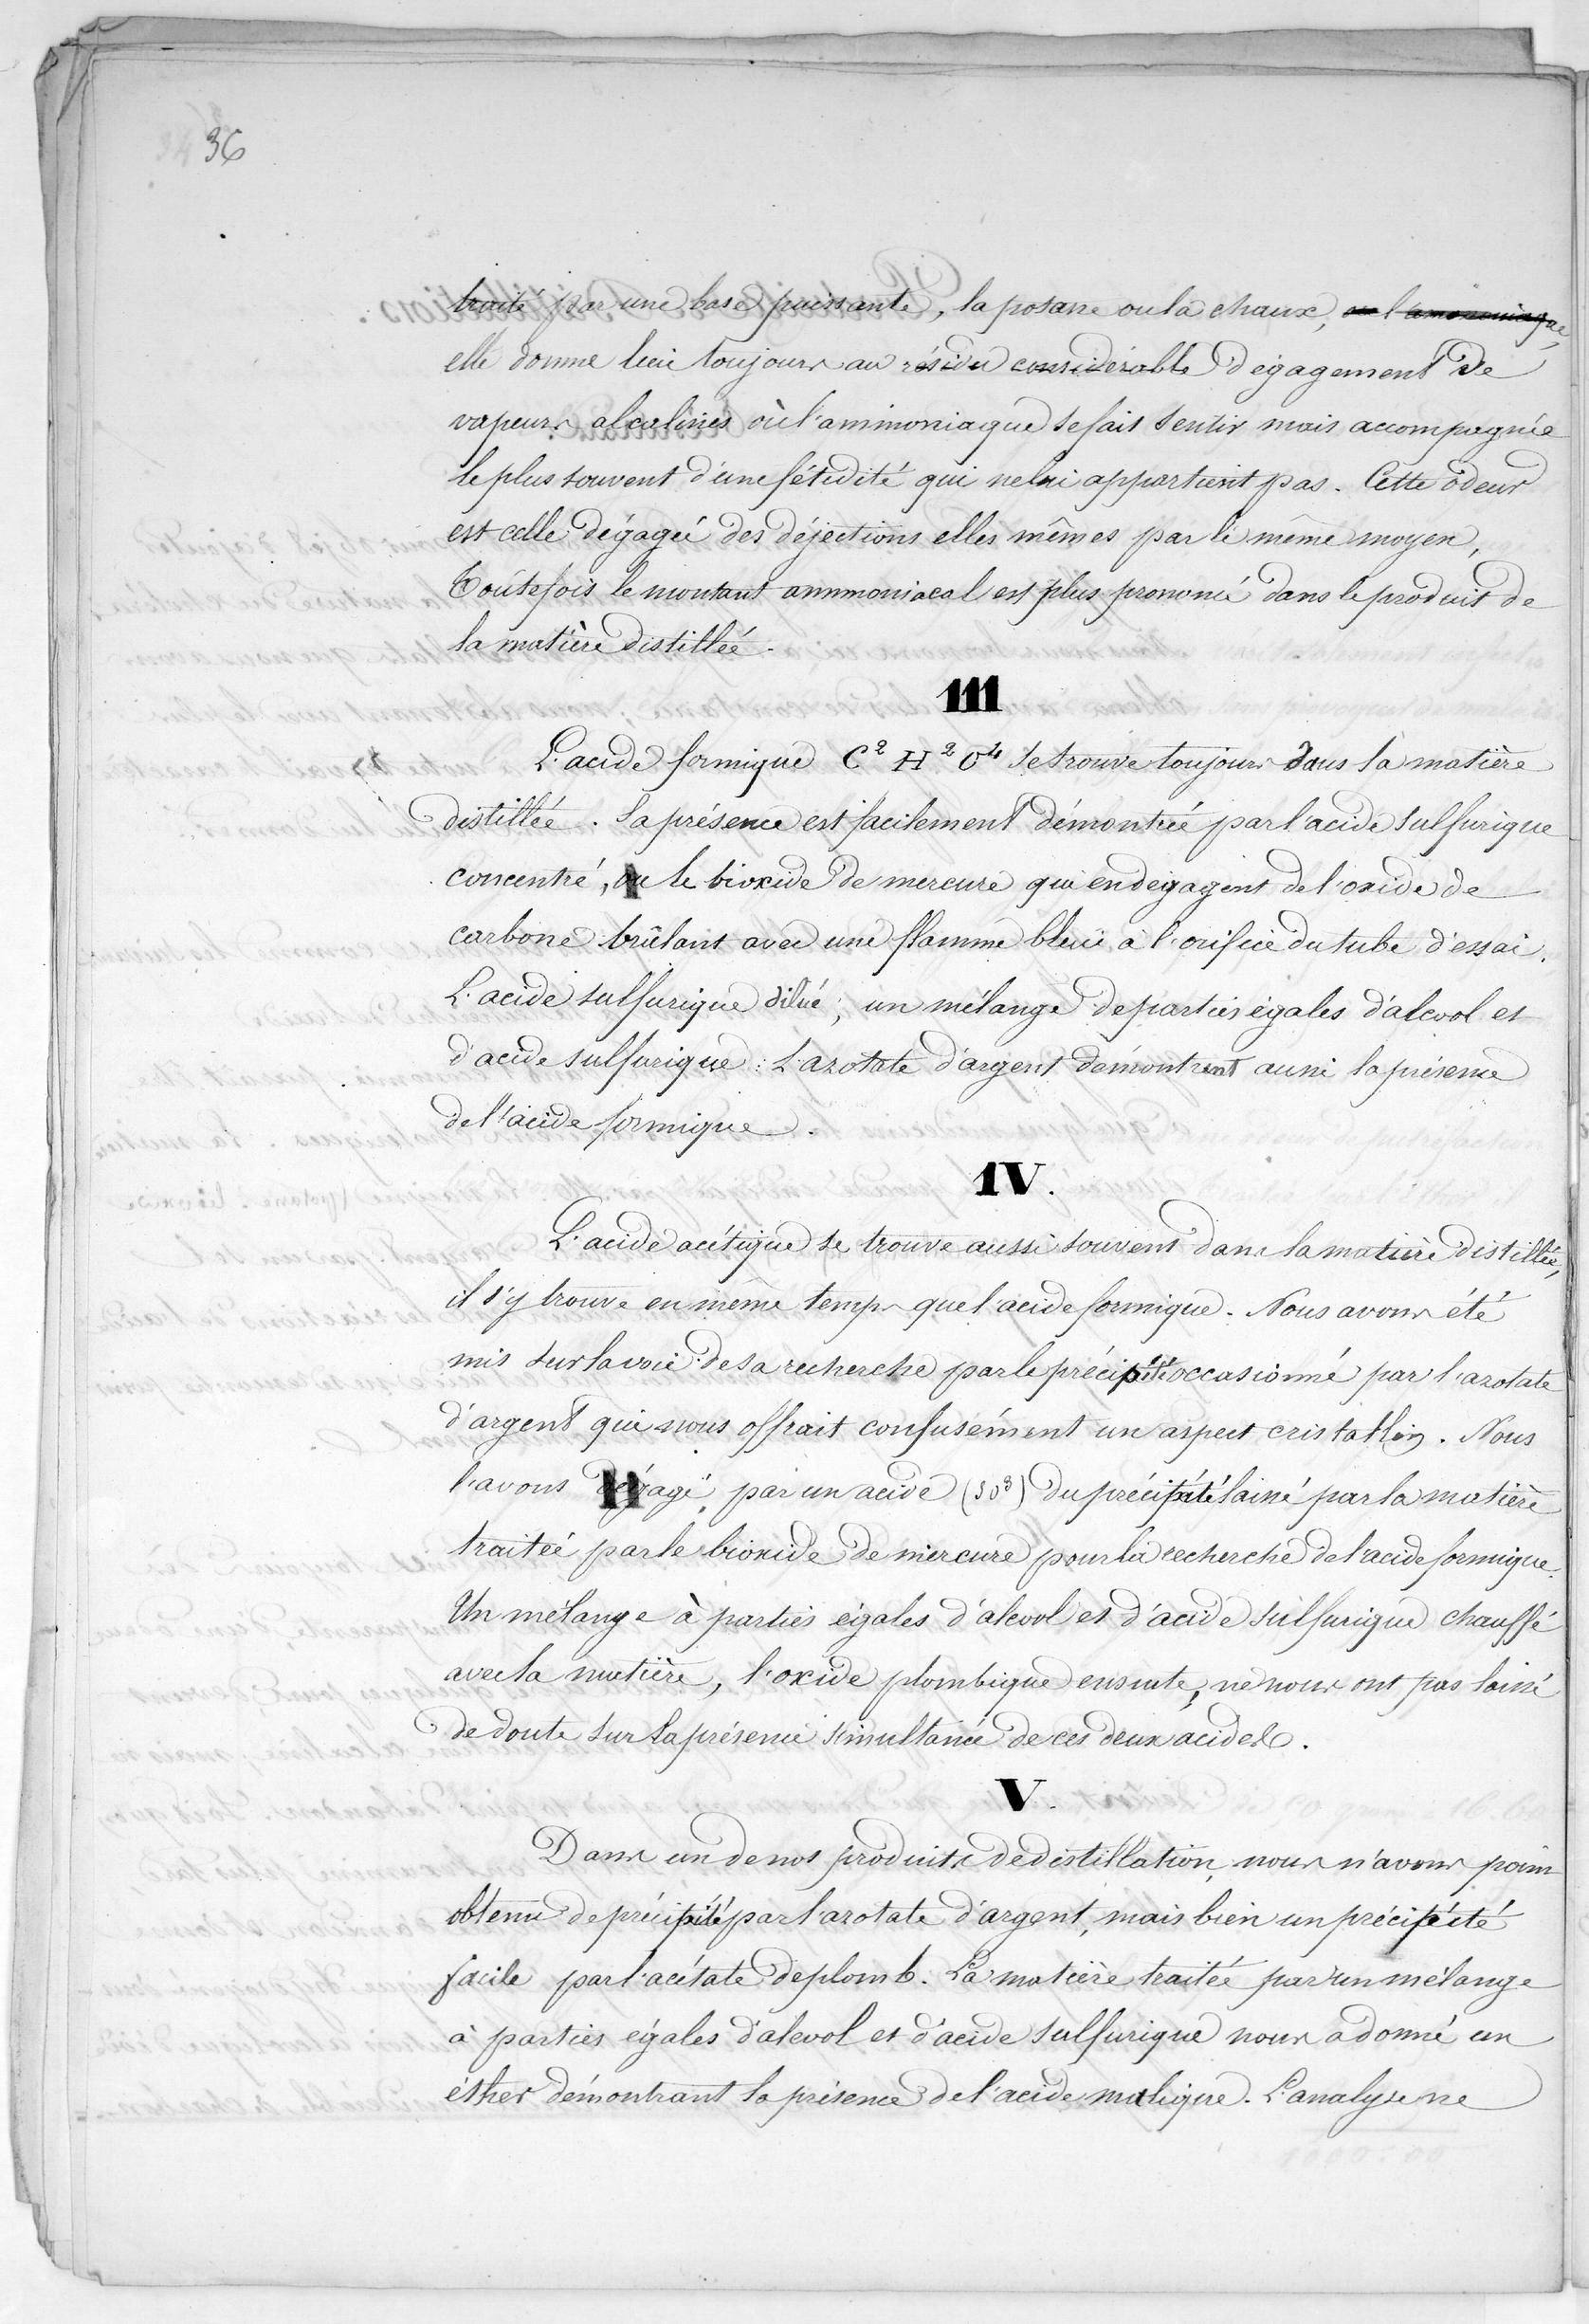 36
traité par une base puissante, la potasse ou la chaux, ou l'ammoniaque,
elle donne lieu toujours au résidu considérable dégagement de
vapeurs alcalines où l'ammoniaque se fait sentir mais accompagnée
le plus souvent d'une fétidité qui ne lui appartient pas. Cette odeur
est celle dégagée des déjections elles mêmes par le même moyen,
Toutefois le montant ammoniacal est plus prononcé dans le produit de
la matière distillée.
III
L'acide formique C² H² O⁴ se trouve toujours dans la matière
distillée. Sa présence est facilement démontrée par l'acide sulfurique
concentré, ou le bioxide de mercure qui en dégagent de l'oxide de
carbone brûlant avec une flamme bleue à l'orifice du tube d'essai.
L'acide sulfurique dilué; un mélange de parties égales d'alcool et
d'acide sulfurique: L'azotate d'argent démontrent aussi la présence
de l'acide formique.
IV.
L'acide acétique se trouve aussi souvent dans la matière distillée,
il s'y trouve en même temps que l'acide formique. Nous avons été
mis sur la voie de sa recherche par le précipité occasionné par l'azotate
d'argent qui nous offrait confusément un aspect cristallin. Nous
l'avons dégagé par un acide (SO³) du précipité laissé par la matière
traitée par le bioxide de mercure pour la recherche de l'acide formique.
Un mélange à parties égales d'alcool et d'acide sulfurique chauffé
avec la matière, l'oxide plombique ensuite, ne nous ont pas laissé
de doute sur la présence simultanée de ces deux acides.
V.
Dans un de nos produits de distillation, nous n'avons point
obtenu de précipité par l'azotate d'argent, mais bien un précipité
facile par l'acétate de plomb. La matière traitée par un mélange
à parties égales d'alcool et d'acide sulfurique nous a donné un
éther démontrant la présence de l'acide malique. L'analyse ne